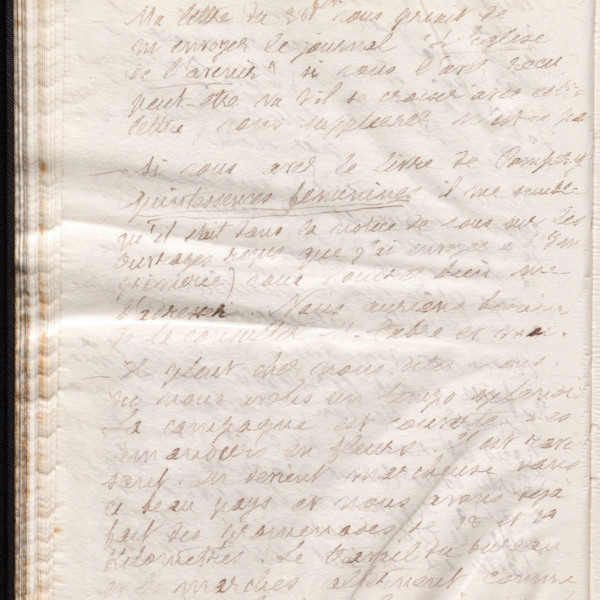 Ma lettre du 28 vous priait de
m'envoyer le journal "L'église
de l'avenir" si vous l'avez reçu
peut-être va-t-il se croiser avec cette
lettre, vous suppléerez n'est-ce pas
— Si vous avez le livre de Pompery
quintessences féminines il me semble
qu'il était dans la notice de vous sur les
ouvrages reçus que j'ai envoyée à
) vous voudrez bien me
l'adresser. Nous aurions besoin
de le consulter et moi.
— Il pleut chez nous dites vous.
Ici nous avons un temps splendide
La campagne est couverte des
amandiers en fleurs. C'est ravis
sant. On devient marcheuse dans
ce beau pays et nous avons déjà
fait des promenades de 18 et 20
kilomètres! Le travail du bureau
et les marches alternent comme